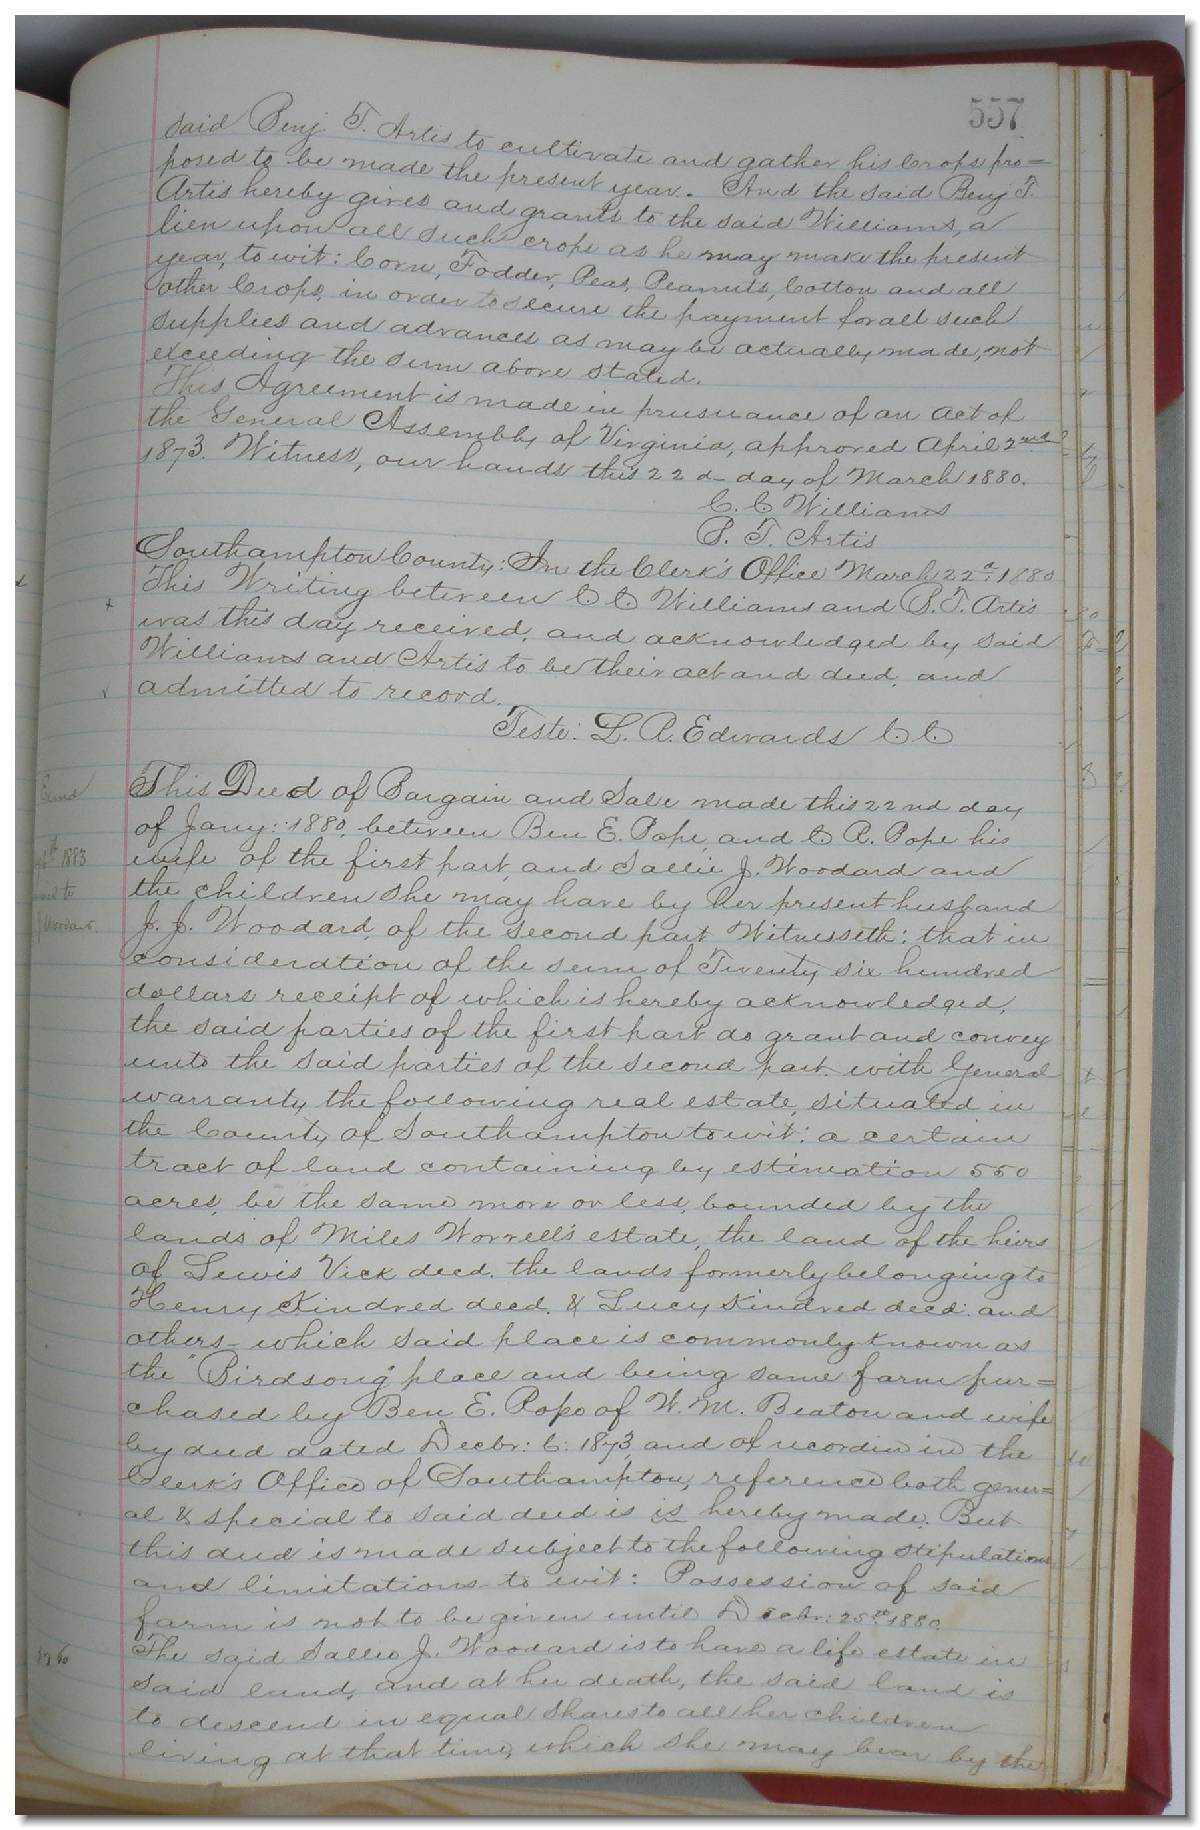 557
said Benj. T. Artis to cultivate and gather his Crops pro=
posed to be made the present year. And the said Benj T.
Artis hereby gives and grants to the said Williams, a
lien upon all such crops as he may make the present
year, to wit: Corn, Fodder, Peas, Peanuts, Cotton and all
other Crops, in order to secure the payment for all such
supplies and advances as may be actually made, not
exceeding the sum above stated.
This Agreement is made in prusuance of an act of
the General Assembly of Virginia, approved April 2nd
1873. Witness, our hands this 22d day of March 1880.
C. C Williams
B. T. Artis
Southampton County: In the Clerk's Office March 22d: 1880
This Writing between C C Williams and B. T. Artis
was this day received, and acknowledged by said
Williams and Artis to be their act and deed, and
admitted to record.
Teste: L. R. Edwards C C
This Deed of Bargain and Sale made this 22nd day
of Jany: 1880, between Ben E. Pope, and C R. Pope his
wife of the first part, and Sallie J. Woodard and
the children she may have by her present husband
J. J. Woodard, of the second part Witnesseth: that in
consideration of the sum of Twenty six hundred
dollars receipt of which is hereby acknowledged,
the said parties of the first part do grant and convey
unto the said parties of the second part with General
warranty, the following real estate, situated in
the County of Southampton to wit: a certain
tract of land containing by estimation 550
acres, be the same more or less, bounded by the
lands of Miles Worrell's estate, the land of the heirs
of Lewis Vick decd. the lands formerly belonging to
Henry Kindred decd. & Lucy Kindred decd: and
others - which said place is commonly known as
the "Birdsong" place and being same farm pur=
chased by Ben E. Pope of W. M. Beaton and wife
by deed dated Decbr: 6: 1873, and of recordin in the
Clerk's Office of Southampton, reference both gener=
al & special to said deed is is hereby made. But
this deed is made subject to the following stipulations
and limitations to wit: Possession of said
farm is not to be given until Decbr: 25th 1880.
The said Sallie J. Woodard is to have a life estate in
said land, and at her death, the said land is
to descend in equal shares to all her children
living at that time, which she may bear by the
1883